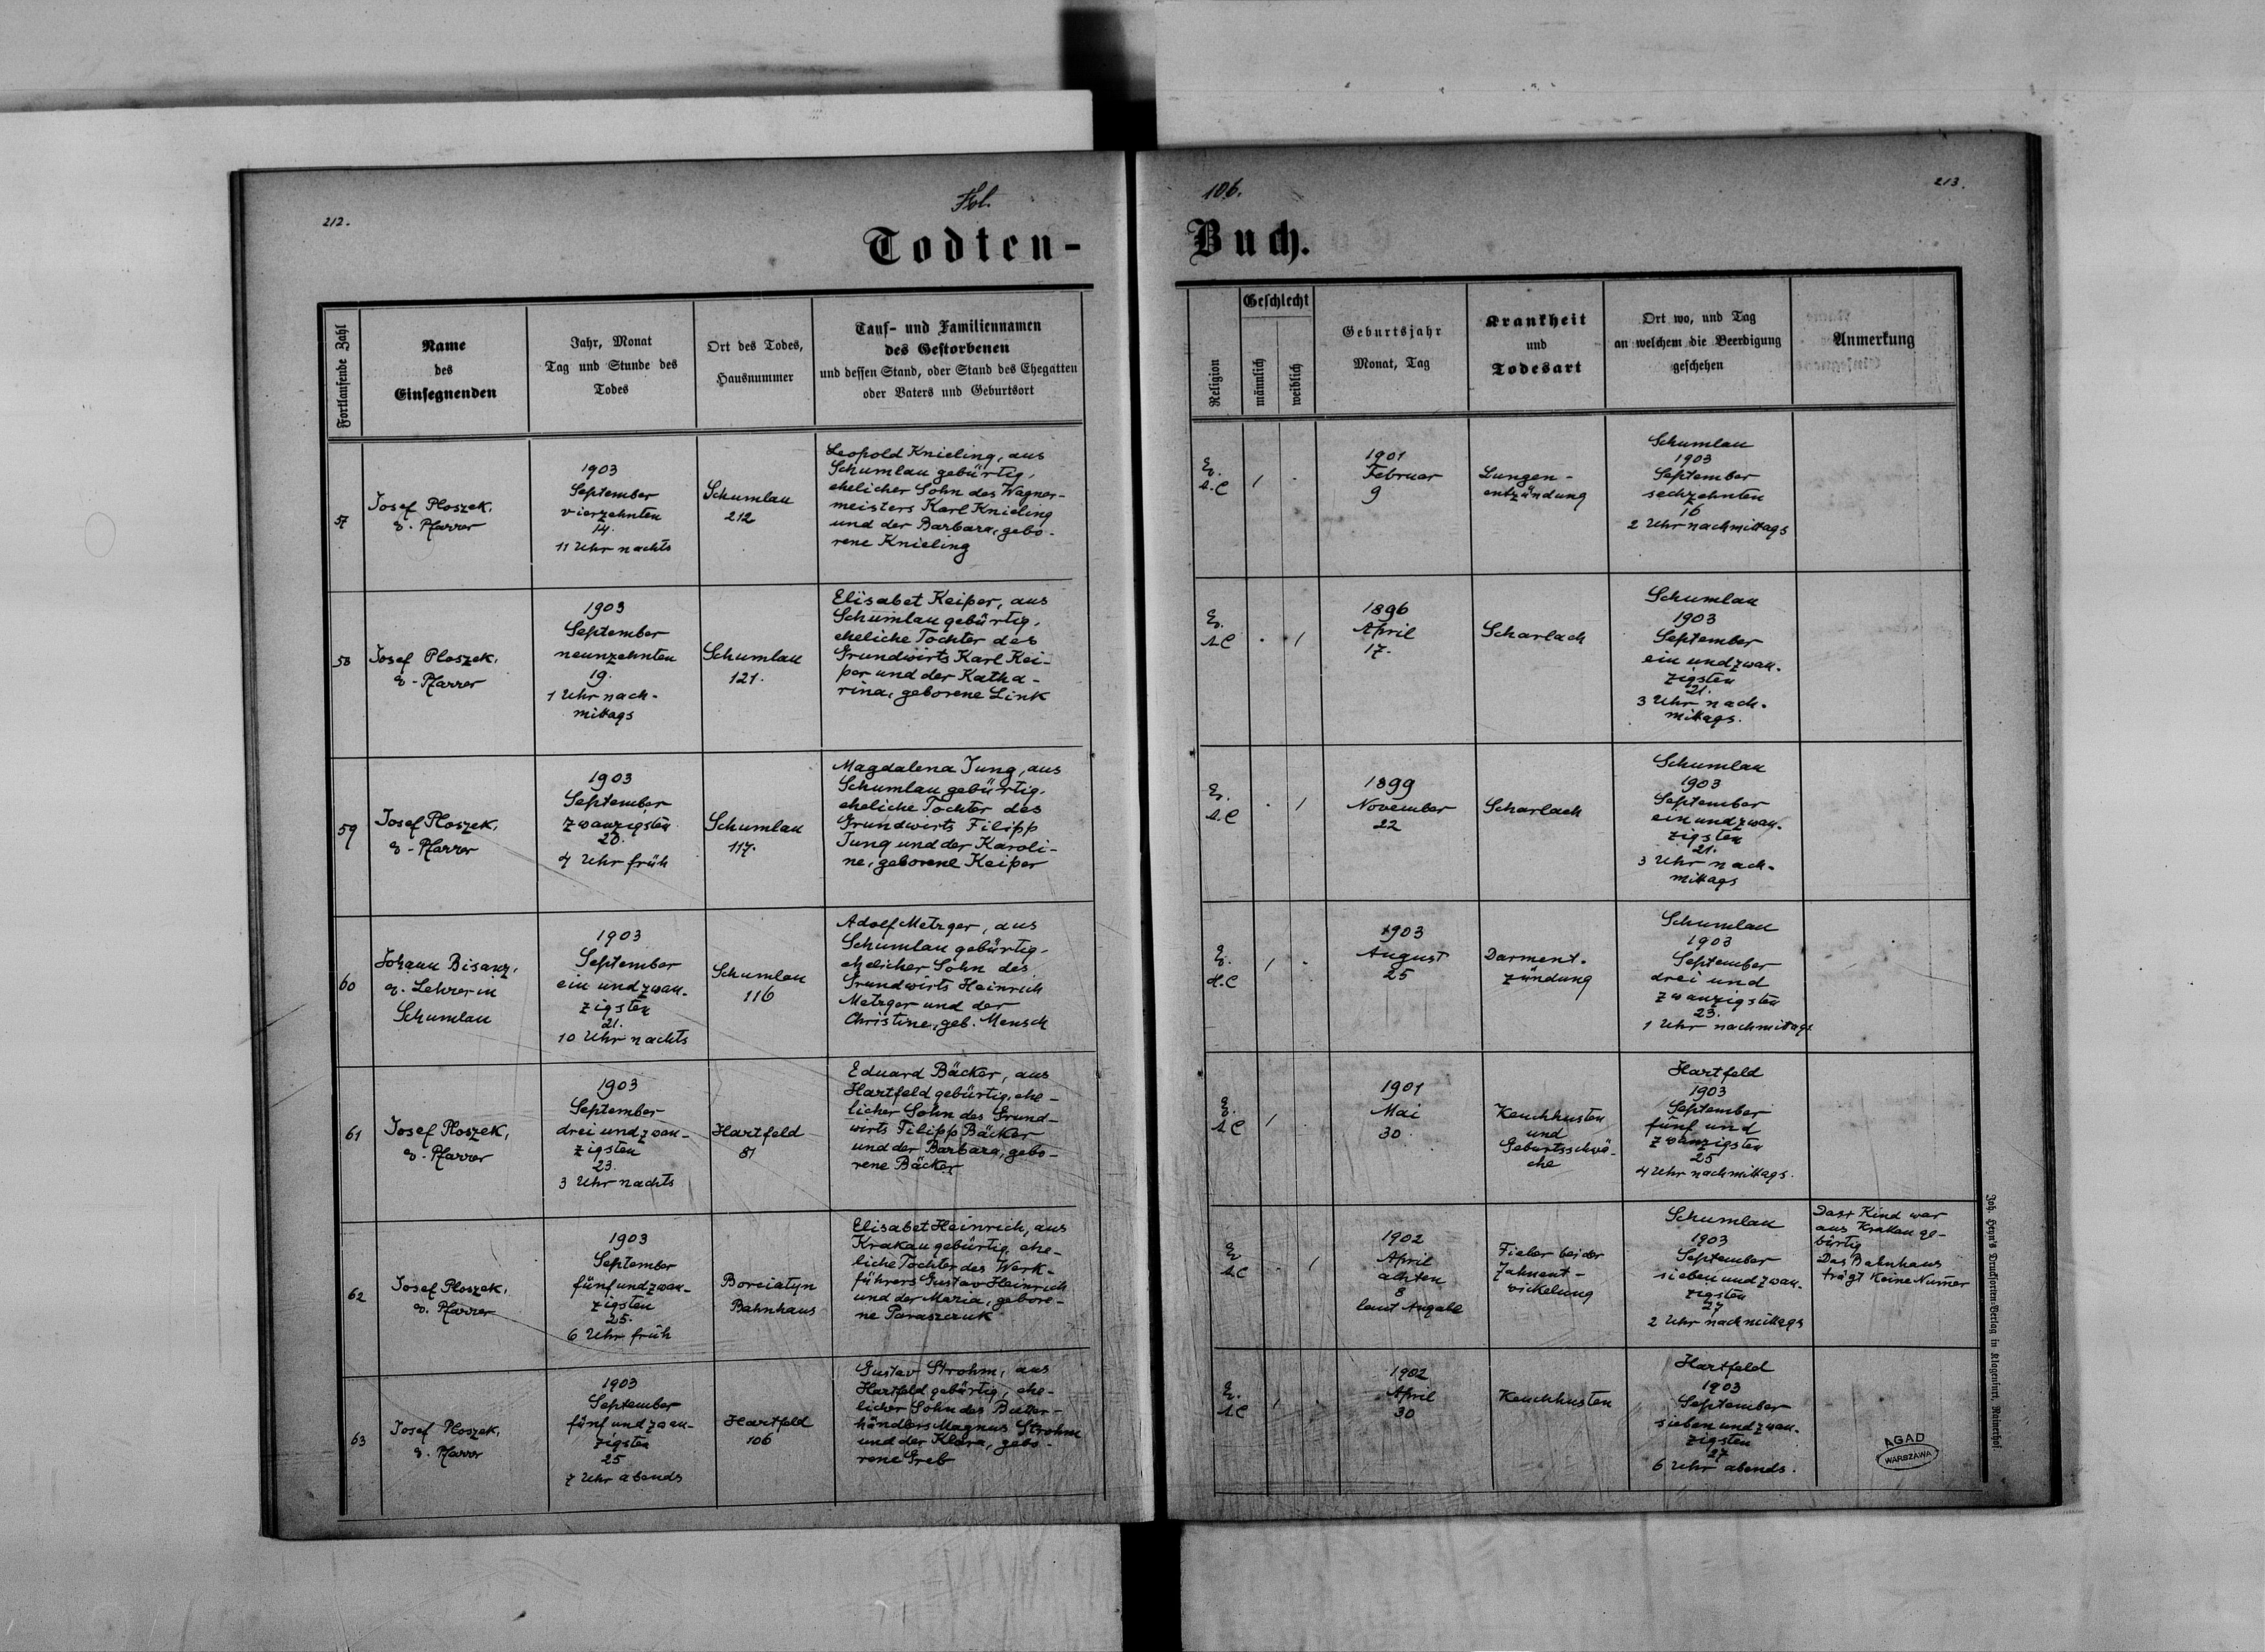 212.
Fol.
Todten-
Fortlaufende Zahl
Name
des
Einsegnenden
Jahr, Monat
Tag und Stunde des
Todes
Ort des Todes,
Hausnummer
Tauf- und Familiennamen
des Gestorbenen
und dessen Stand, oder Stand des Ehegatten
oder Vaters und Geburtsort
57
Josef Ploszek,
e. Pfarrer
1903
September
vierzehnten
14.
11 Uhr nachts
Schumlau
212
Leopold Knieling, aus
Schumlau gebürtig,
ehelicher Sohn des Wagner-
meisters Karl Knieling
und der Barbara, gebo-
rene Knieling
58
Josef Ploszek,
e. Pfarrer
1903
September
neunzehnten
19.
1 Uhr nach-
mittags
Schumlau
121.
Elisabet Keiper, aus
Schumlau gebürtig,
eheliche Tochter des
Grundwirts Karl Kei-
per und der Katha-
rina, geborene Link
59
Josef Ploszek,
e. Pfarrer
1903
September
zwanzigsten
20.
4 Uhr früh
Schumlau
117.
Magdalena Jung, aus
Schumlau gebürtig,
eheliche Tochter des
Grundwirts Filipp
Jung und der Karoli-
ne, geborene Keiper
60
Johann Bisanz,
e. Lehrer in
Schumlau
1903
September
ein und zwan-
zigsten
21.
10 Uhr nachts
Schumlau
116
Adolf Metzger, aus
Schumlau gebürtig,
ehelicher Sohn des
Grundwirts Heinrich
Metzger und der
Christine, geb. Mensch
61
Josef Ploszek,
e. Pfarrer
1903
September
drei und zwan-
zigsten
23.
3 Uhr nachts
Hartfeld
81
Eduard Bäcker, aus
Hartfeld gebürtig, ehe-
licher Sohn des Grund-
wirts Filipp Bäcker
und der Barbara, gebo-
rene Bäcker
62
Josef Ploszek,
e. Pfarrer
1903
September
fünf und zwan-
zigsten
25.
6 Uhr früh
Borciatyn
Bahnhaus
Elisabet Heinrich, aus
Krakau gebürtig, ehe-
liche Tochter des Werk-
führers Gustav Heinrich
und der Maria, gebore-
ne Paraszczuk
63
Josef Ploszek,
e. Pfarrer
1903
September
fünf und zwan-
zigsten
25
7 Uhr abends
Hartfeld
106
Gustav Strohm, aus
Hartfeld gebürtig, ehe-
licher Sohn des Butter-
händlers Magnus Strohm
und der Klara, gebo-
rene Greb
106.
213.
Buch.
Religion
Geschlecht
männlich
weiblich
Geburtsjahr
Monat, Tag
Krankheit
und
Todesart
Ort wo, und Tag
an welchem die Beerdigung
geschehen
Anmerkung
E.
A.C
1901
Februar
9
Lungen-
entzündung
Schumlau
1903
September
sechzehnten
16
2 Uhr nachmittags
E.
A.C
1896
April
17.
Scharlach
Schumlau
1903
September
ein und zwan-
zigsten
21.
3 Uhr nach-
mittags.
E.
A.C
1899
November
22
Scharlach
Schumlau
1903
September
ein und zwan-
zigsten
21.
3 Uhr nach-
mittags
E.
H.C
1903
August
25
Darment-
zündung
Schumlau
1903
September
drei und
zwanzigsten
23.
1 Uhr nachmittags
E.
A.C
1901
Mai
30
Keuchhusten
und
Geburtsschwä-
che
Hartfeld
1903
September
fünf und
zwanzigsten
25
4 Uhr nachmittags.
E.
A.C
1902
April
achten
8
laut Angabe
Fieber bei der
Zahnent-
wickelung
Schumlau
1903
September
sieben und zwan-
zigsten
27
2 Uhr nachmittags
Das Kind war
aus Krakau ge-
bürtig
Das Bahnhaus
trägt keine Numer
E.
A.C
1902
April
30
Keuchhusten
Hartfeld
1903
September
sieben und zwan-
zigsten
27
6 Uhr abends.
Joh. Heyn's Drucksorten-Verlag in Klagenfurt, Rainerhof
AGAD
WARSZAWA